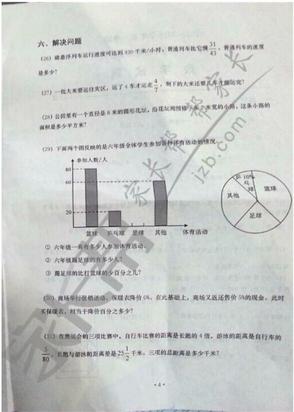 六、解决问题
(26) 磁悬浮列车运行速度可达到430千米/小时，普通列车比它慢31/43，普通列车的速度
是多少?
(27) 一批大米要运往灾区，运了4车才运走4/7，剩下的大米还要几车才能运完?
(28) 公园里有一个直径是8米的圆形花坛，沿花坛周围铺了宽2米宽的小路，这条小路的
面积是多少平方米?
(29) 下面两个图反映的是六年级全体学生参加各种体育活动的情况。
参加人数/人
80
60
40
20
篮球
乒乓球
足球
其他
体育活动
乒乓球
10%
篮球
其他
足球
① 六年级一共有多少人参加体育活动?
② 六年级踢足球的有多少人?
③ 踢足球的比打篮球的少百分之几?
(30) 商场举行促销活动，保暖衣降价
在此基础上，商场又返还售价5%的现金。此时
买保暖衣，相当于降价百分之多少?
(31) 在奥运会的三项比赛中，自行车比赛的距离是长跑的4倍，游泳的距离是自行车的
3/80，长跑与游泳的距离差是
千米，三项的总距离是多少千米?
·4·
家长帮
jzb.com